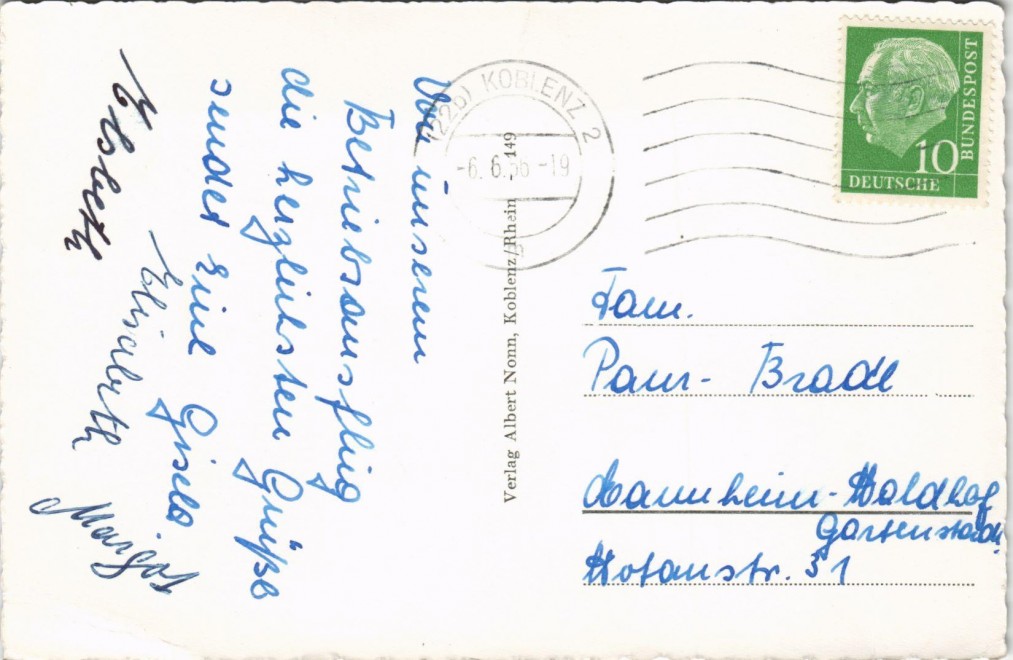 Von unserem
Betriebsausflug
die herzlichsten Grüße
sendet Eine Gisela.
Elisabeth
Elsbeth
Margot
Verlag Albert Nonn, Koblenz/Rhein 149
(22b) KOBLENZ 2
-6.6.56-19
b
10
DEUTSCHE
BUNDESPOST
Fam.
Paur- Bradl
Mannheim-Waldhof
Gartenstadt
Wotanstr. 31